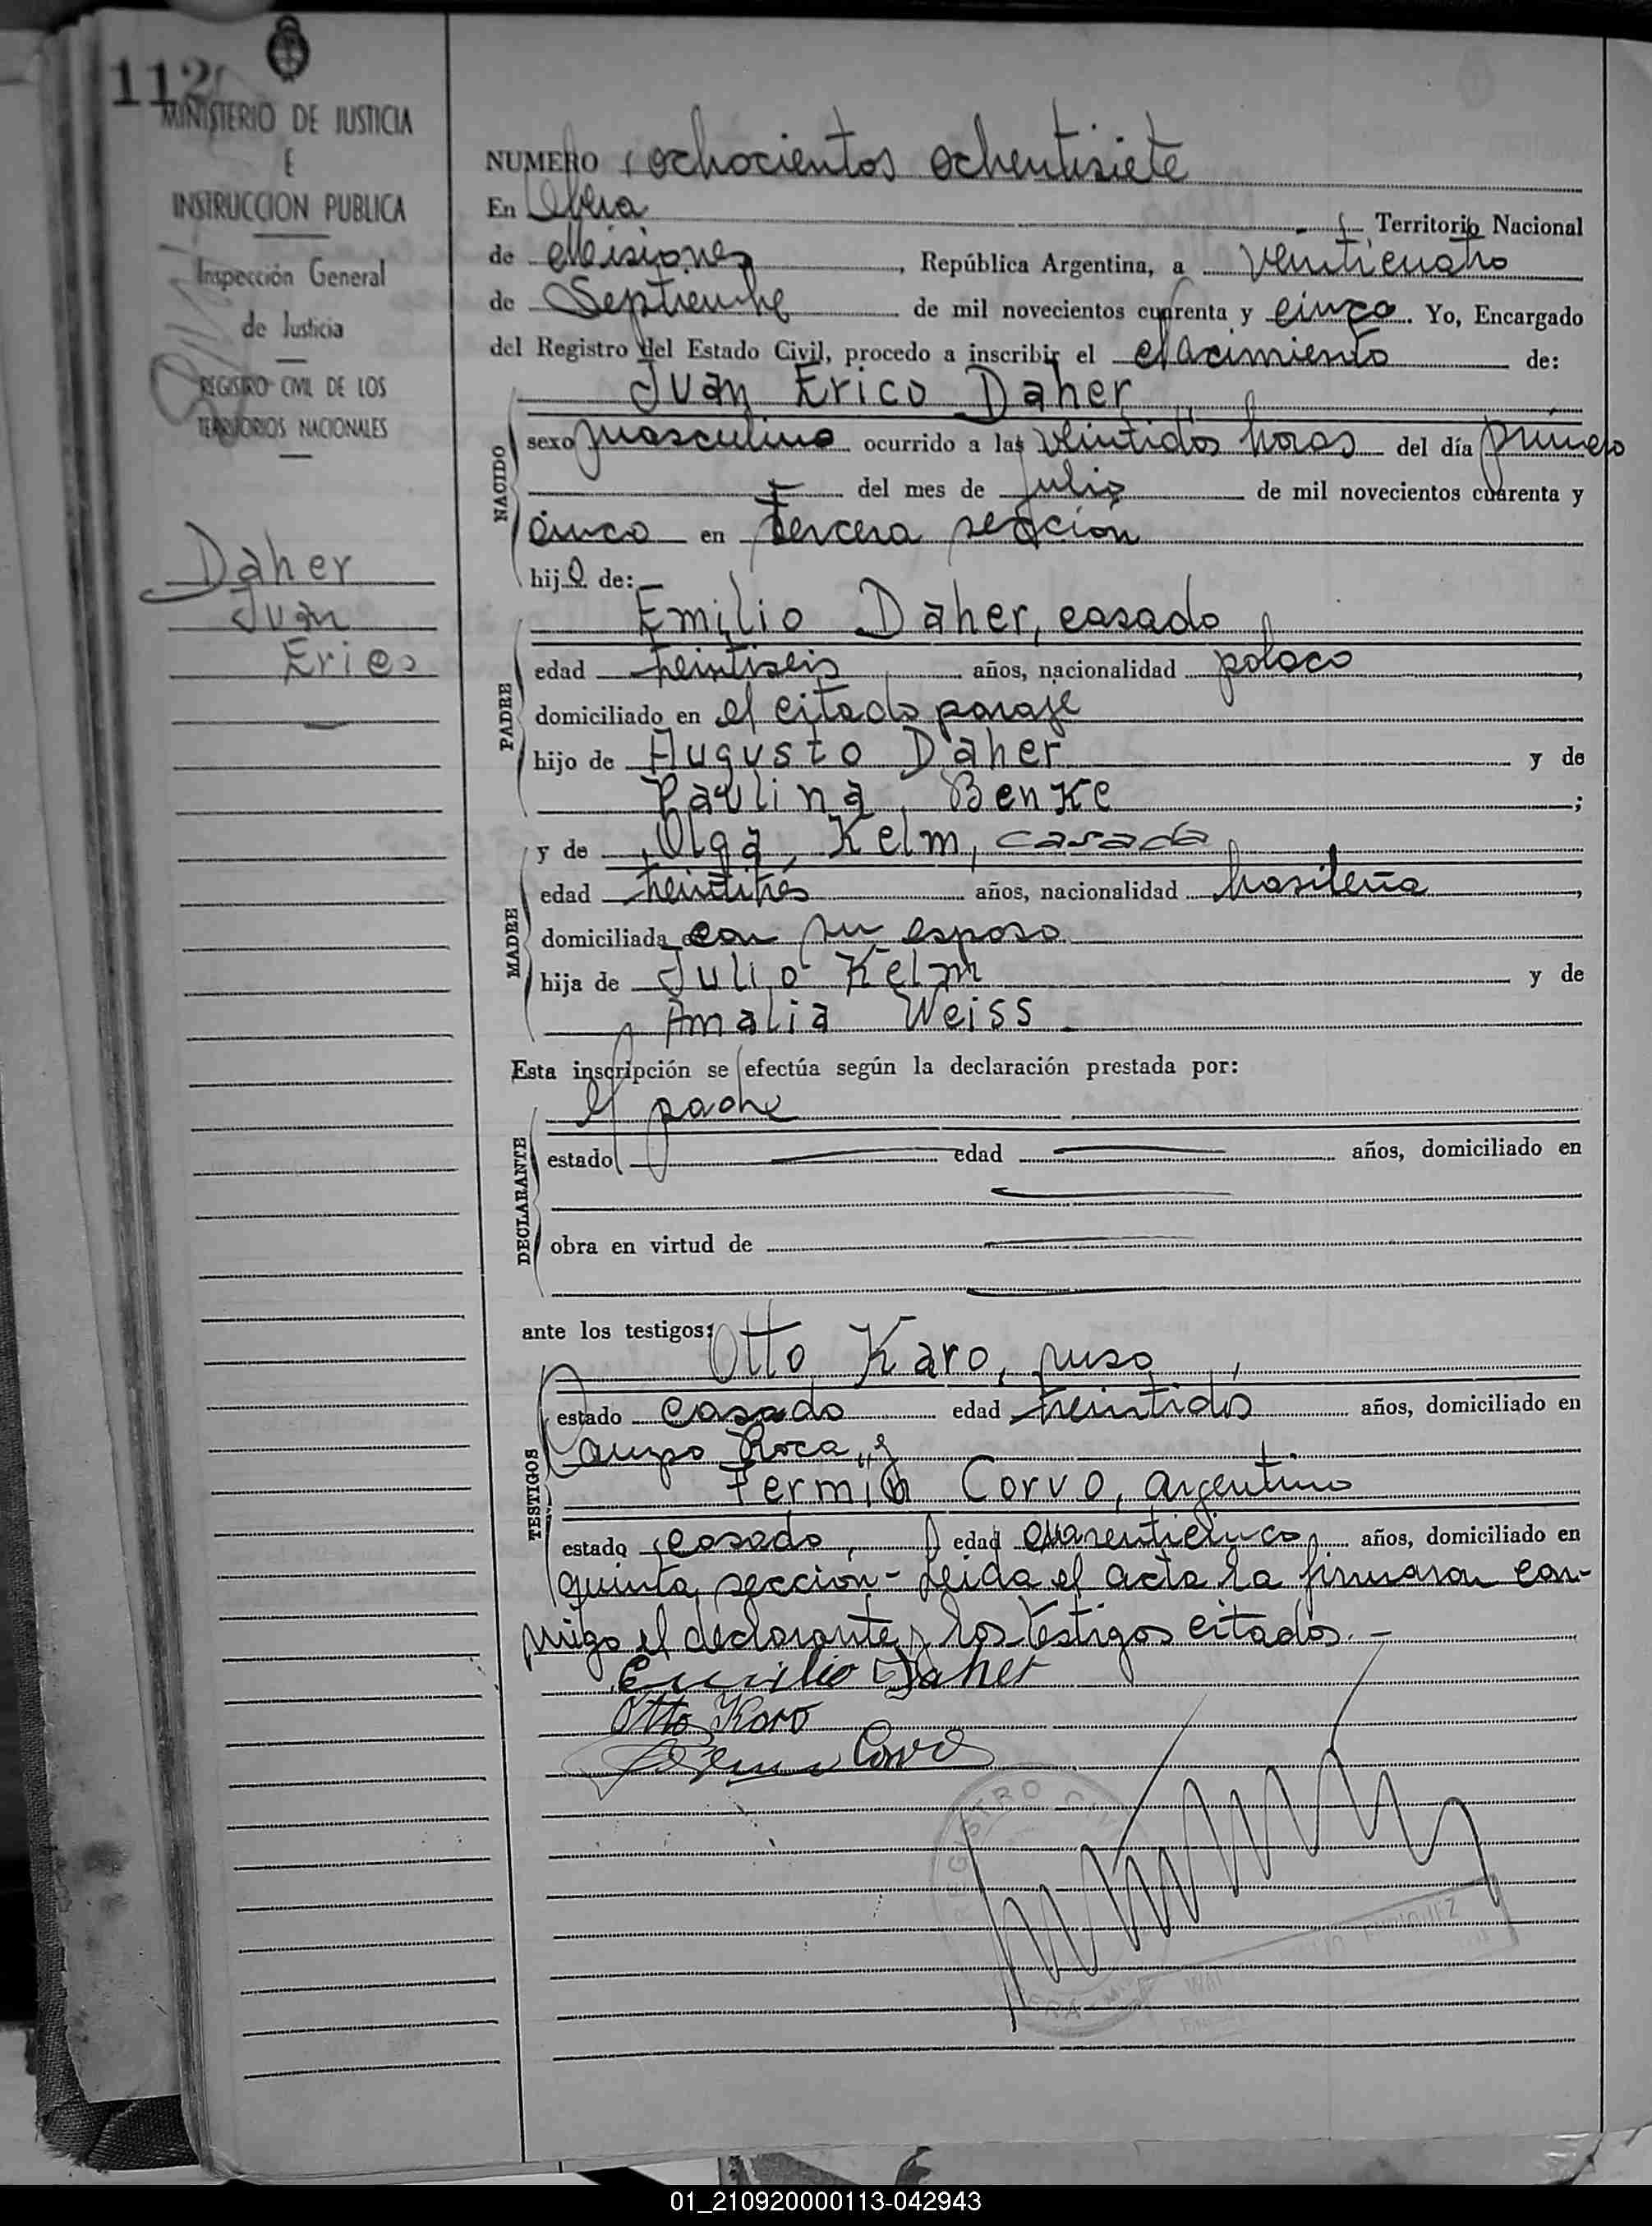 112
MINISTERIO DE JUSTICIA
E
INSTRUCCION PUBLICA
Inspección General
de Justicia
REGISTRO CIVIL DE LOS
TERRITORIOS NACIONALES
Daher
Juan
Erico
NUMERO ochocientos ochentisiete
En Obera Territorio Nacional
de Misiones, República Argentina, a veinticuatro
de Septiembre de mil novecientos cuarenta y cinco. Yo, Encargado
del Registro del Estado Civil, procedo a inscribir el nacimiento de:
Juan Erico Daher
NACIDO
sexo masculino ocurrido a las veintidos horas del día primero
del mes de julio de mil novecientos cuarenta y
cinco en tercera sección
hijo de:
Emilio Daher, casado
PADRE
edad treintiseis años, nacionalidad polaco,
domiciliado en el citado paraje
hijo de Augusto Daher y de
Paulina Benke;
y de Olga Kelm, casada
MADRE
edad treintitrés años, nacionalidad brasileña,
domiciliada con su esposo
hija de Julio Kelm y de
Amalia Weiss
Esta inscripción se efectúa según la declaración prestada por:
el padre
DECLARANTE
estado edad años, domiciliado en
obra en virtud de
ante los testigos:
Otto Karo, ruso,
TESTIGOS
estado casado edad treintidos años, domiciliado en
Campo Roca, y
Fermin Corvo, argentino
estado casado, edad cuarenticinco años, domiciliado en
quinta sección- Leida el acta la firmaron con-
migo el declarante y los testigos citados.-
Emilio Daher
Otto Karo
Corvo
REGISTRO CIVIL
01_210920000113-042943